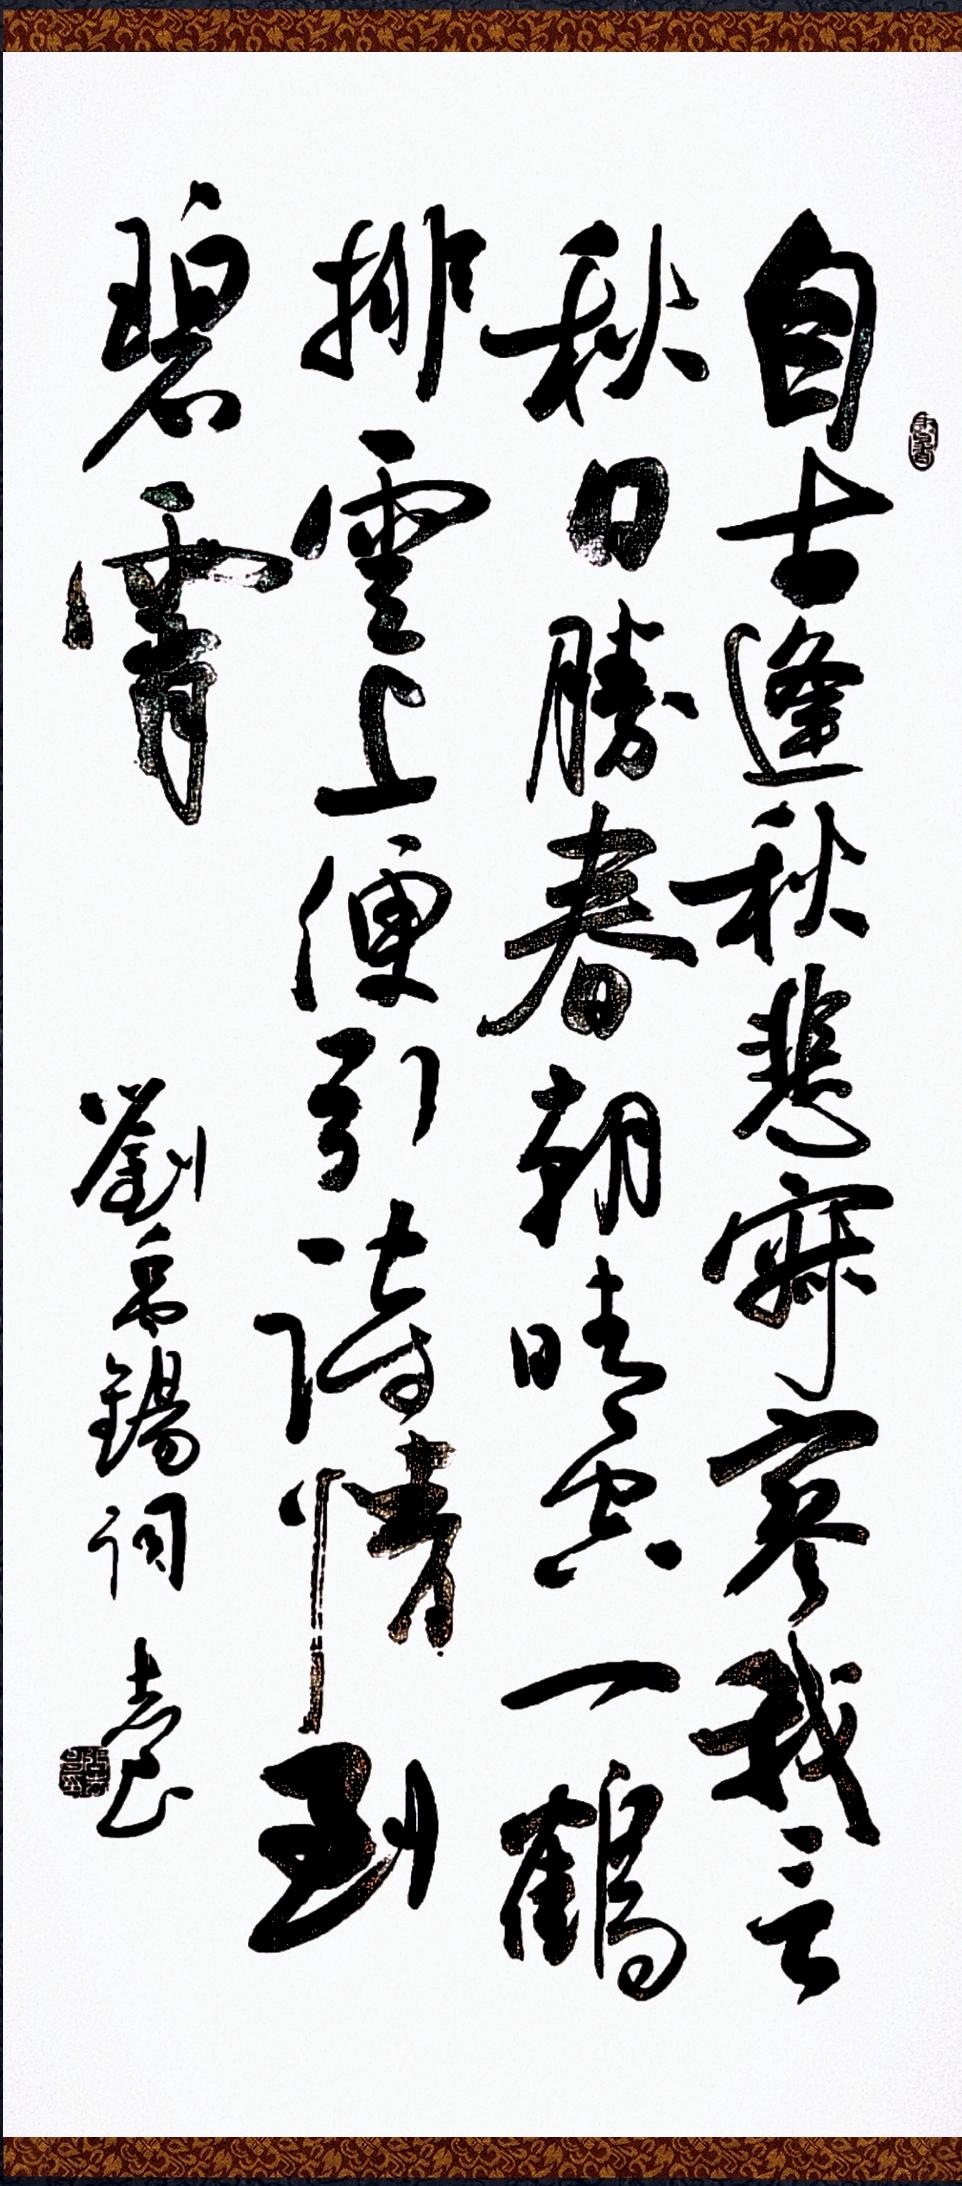 自古逢秋悲寂寥我言
秋日勝春朝晴空一鶴
排雲上便引詩情到
碧霄
劉禹錫詞